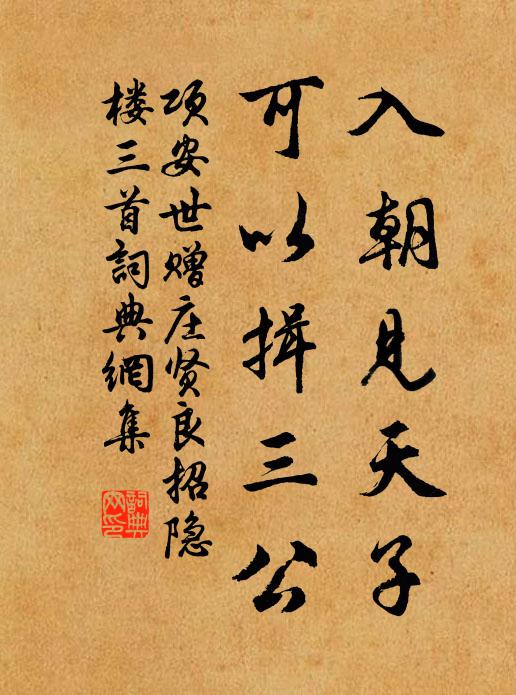 入朝見天子
可以揖三公
项安世赠庄贤良招隐
楼三首詞典網集
詞典
网印